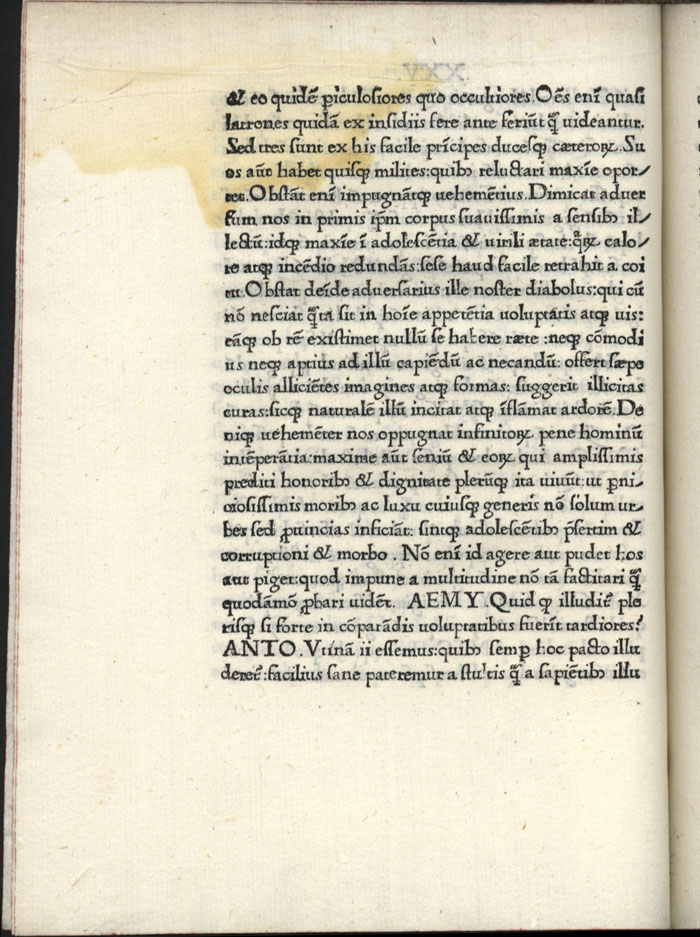 & eo quidē ꝑiculosiores quo occultiores. Oēs enī quasi
latrones quidā ex insidiis fere ante feriūt q̄ȝ uideantur.
Sed tres sunt ex his facile prīcipes ducesqꝫ cæteroꝝ. Su
os aūt habet quisqꝫ milites: quibꝫ reluctari maxīe opor⸗
tet. Obstāt enī impugnātqꝫ uehemētius. Dimicat aduer
sum nos in primis ipm̄ corpus suauissimis a sensibꝫ il⸗
lectū: idqꝫ maxīe ī adolescētia & uirili ætate: q̄ꝝ calo⸗
re atqꝫ incēdio redundās: sese haud facile retrahit a coi
tu. Obstat deīde aduersarius ille noster diabolus: qui cū
nō nesciat q̄ȝta sit in hoīe appetētia uoluptatis atqꝫ uis:
eāqꝫ ob rē existimet nullū se habere ræte : neqꝫ cōmodi
us neqꝫ aptius ad illū capiēdū ac necandū: offert sæpe
oculis alliciētes imagines atqꝫ formas: suggerit illicitas
curas: sicqꝫ naturalē illū incitat atqꝫ īflāmat ardorē. De
niqꝫ uehemēter nos oppugnat infinitoꝝ pene hominū
intēperātia: maxime aūt seniū & eoꝝ qui amplissimis
prediti honoribꝫ & dignitate plerūqꝫ ita uiuūt: ut ꝑni⸗
ciosissimis moribꝫ ac luxu cuiusqꝫ generis nō solum ur⸗
bes sed ꝓuincias inficiāt: sintqꝫ adolescētibꝫ p̄sertim &
corruptioni & morbo . Nō enī id agere aut pudet hos
aut piget: quod impune a multitudine nō tā factitari q̄ȝ
quodāmō ꝓbari uidēt. AEMY. Quid ꝙ illudiē ple
risqꝫ si forte in cōparādis uoluptatibus fuerīt tardiores?
ANTO. Vtinā ii essemus: quibꝫ semꝑ hoc pacto illu
dereē: facilius sane pateremur a stultis q̄ȝ a sapiētibꝫ illu